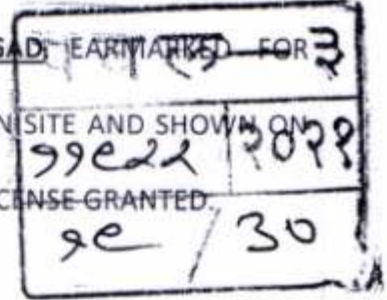 GAD, EARMARKED FOR ३
N SITE AND SHOWN ON
२०२१
CENSE GRANTED.
१९ / ३०